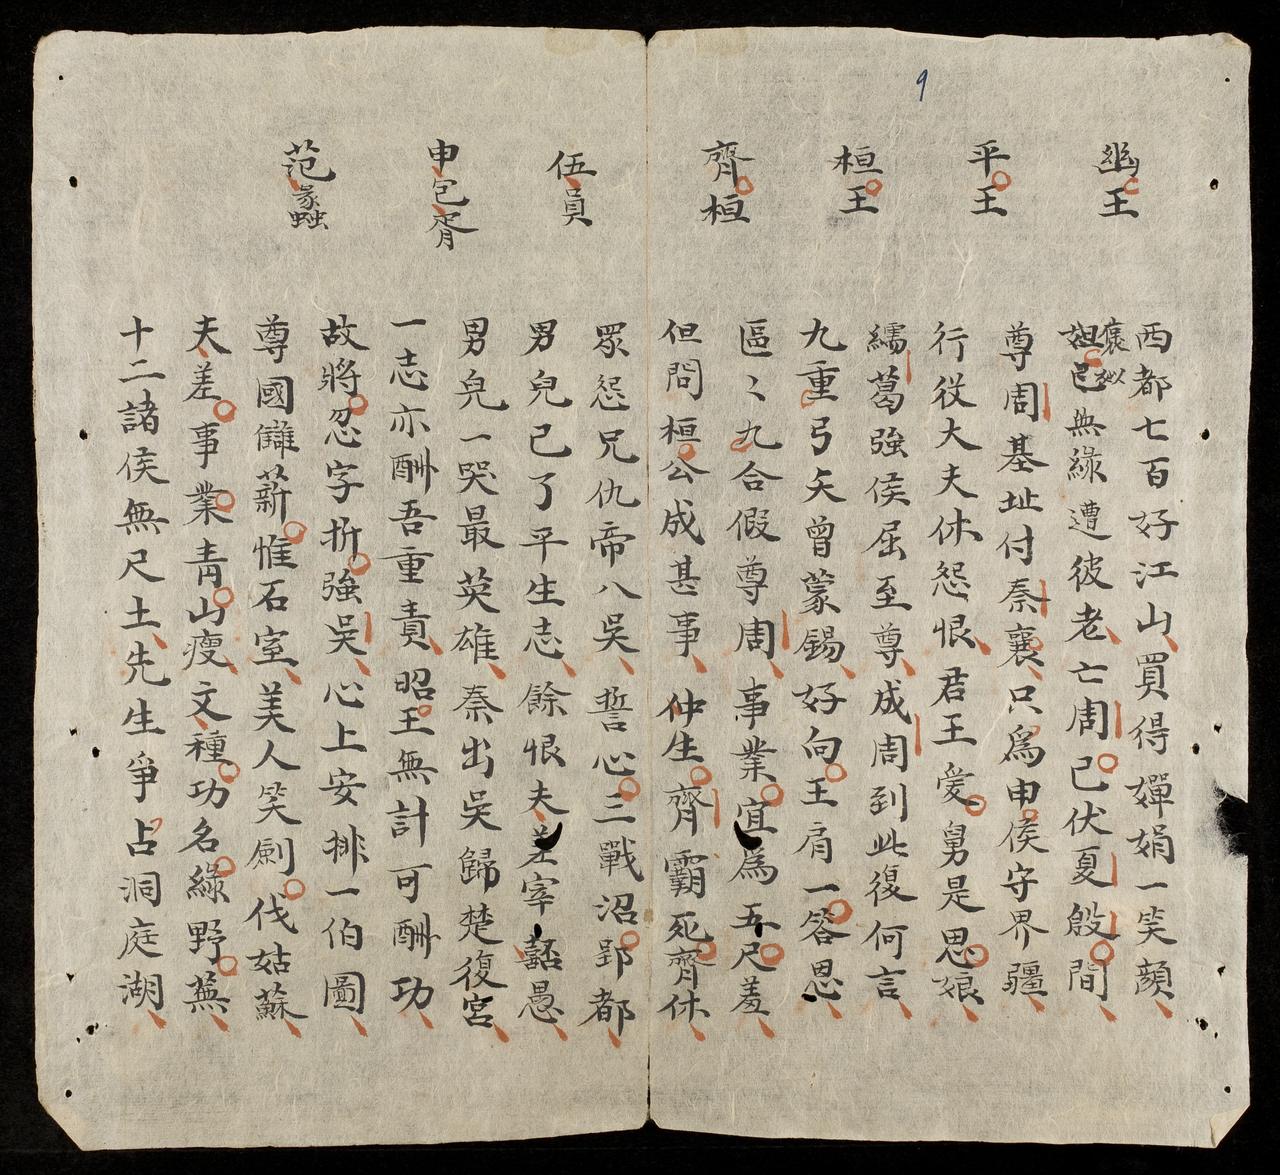 幽王
西都七百好江山買得嬋娟一笑顔
妲己無緣遭彼老亡周已伏夏殷間
褒姒
平王
尊周基址付秦襄只爲申侯守界疆
行役大夫休怨恨君王愛舅是思娘
桓王
繻葛強侯屈至尊成周到此復何言
九重弓矢曾蒙錫好向王肩一答恩
齊桓
區〻九合假尊周事業宜爲五尺羞
但問桓公成甚事仲生齊霸死齊休
伍員
眾怨兄仇帝八吳誓心三戰沼郢都
男兒已了平生志餘恨夫差宰嚭愚
申包胥
男兒一哭最英雄秦出吳歸楚復宮
一志亦酬吾重責昭王無計可酬功
范蠡
故將忍字折強吳心上安排一伯圖
尊國讎薪惟石室美人笑劍伐姑蘇
夫差事業青山瘦文種功名綠野蕪
十二諸侯無尺土先生爭占洞庭湖
9